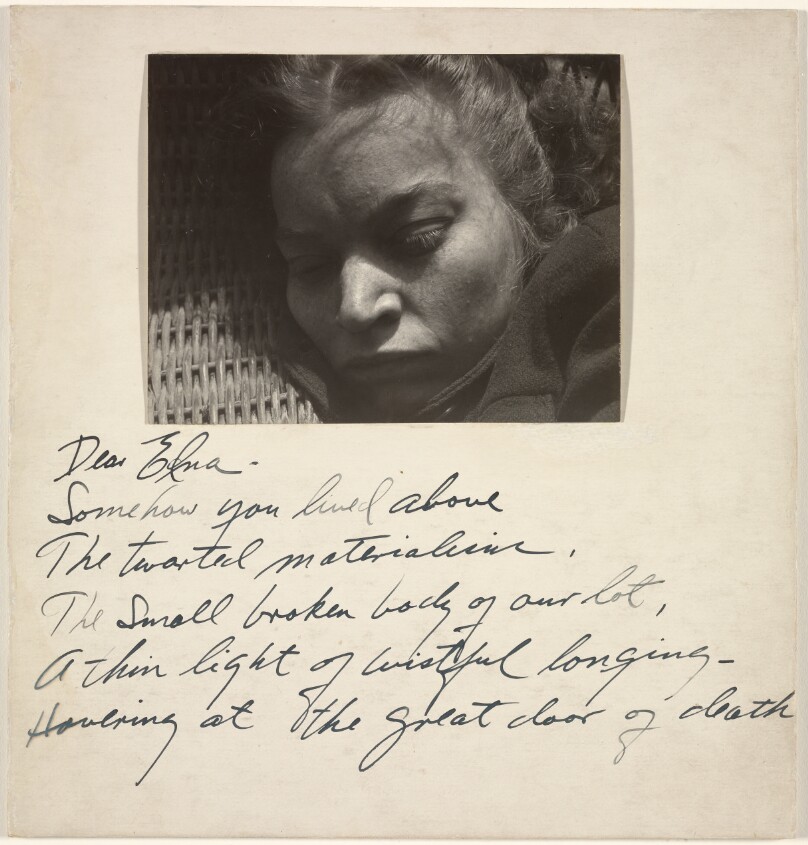 Dear Elna -
Somehow you lived above
The twarted materialism.
The Small broken body of our lot,
A thin light of wistful longing -
Hovering at the great door of death